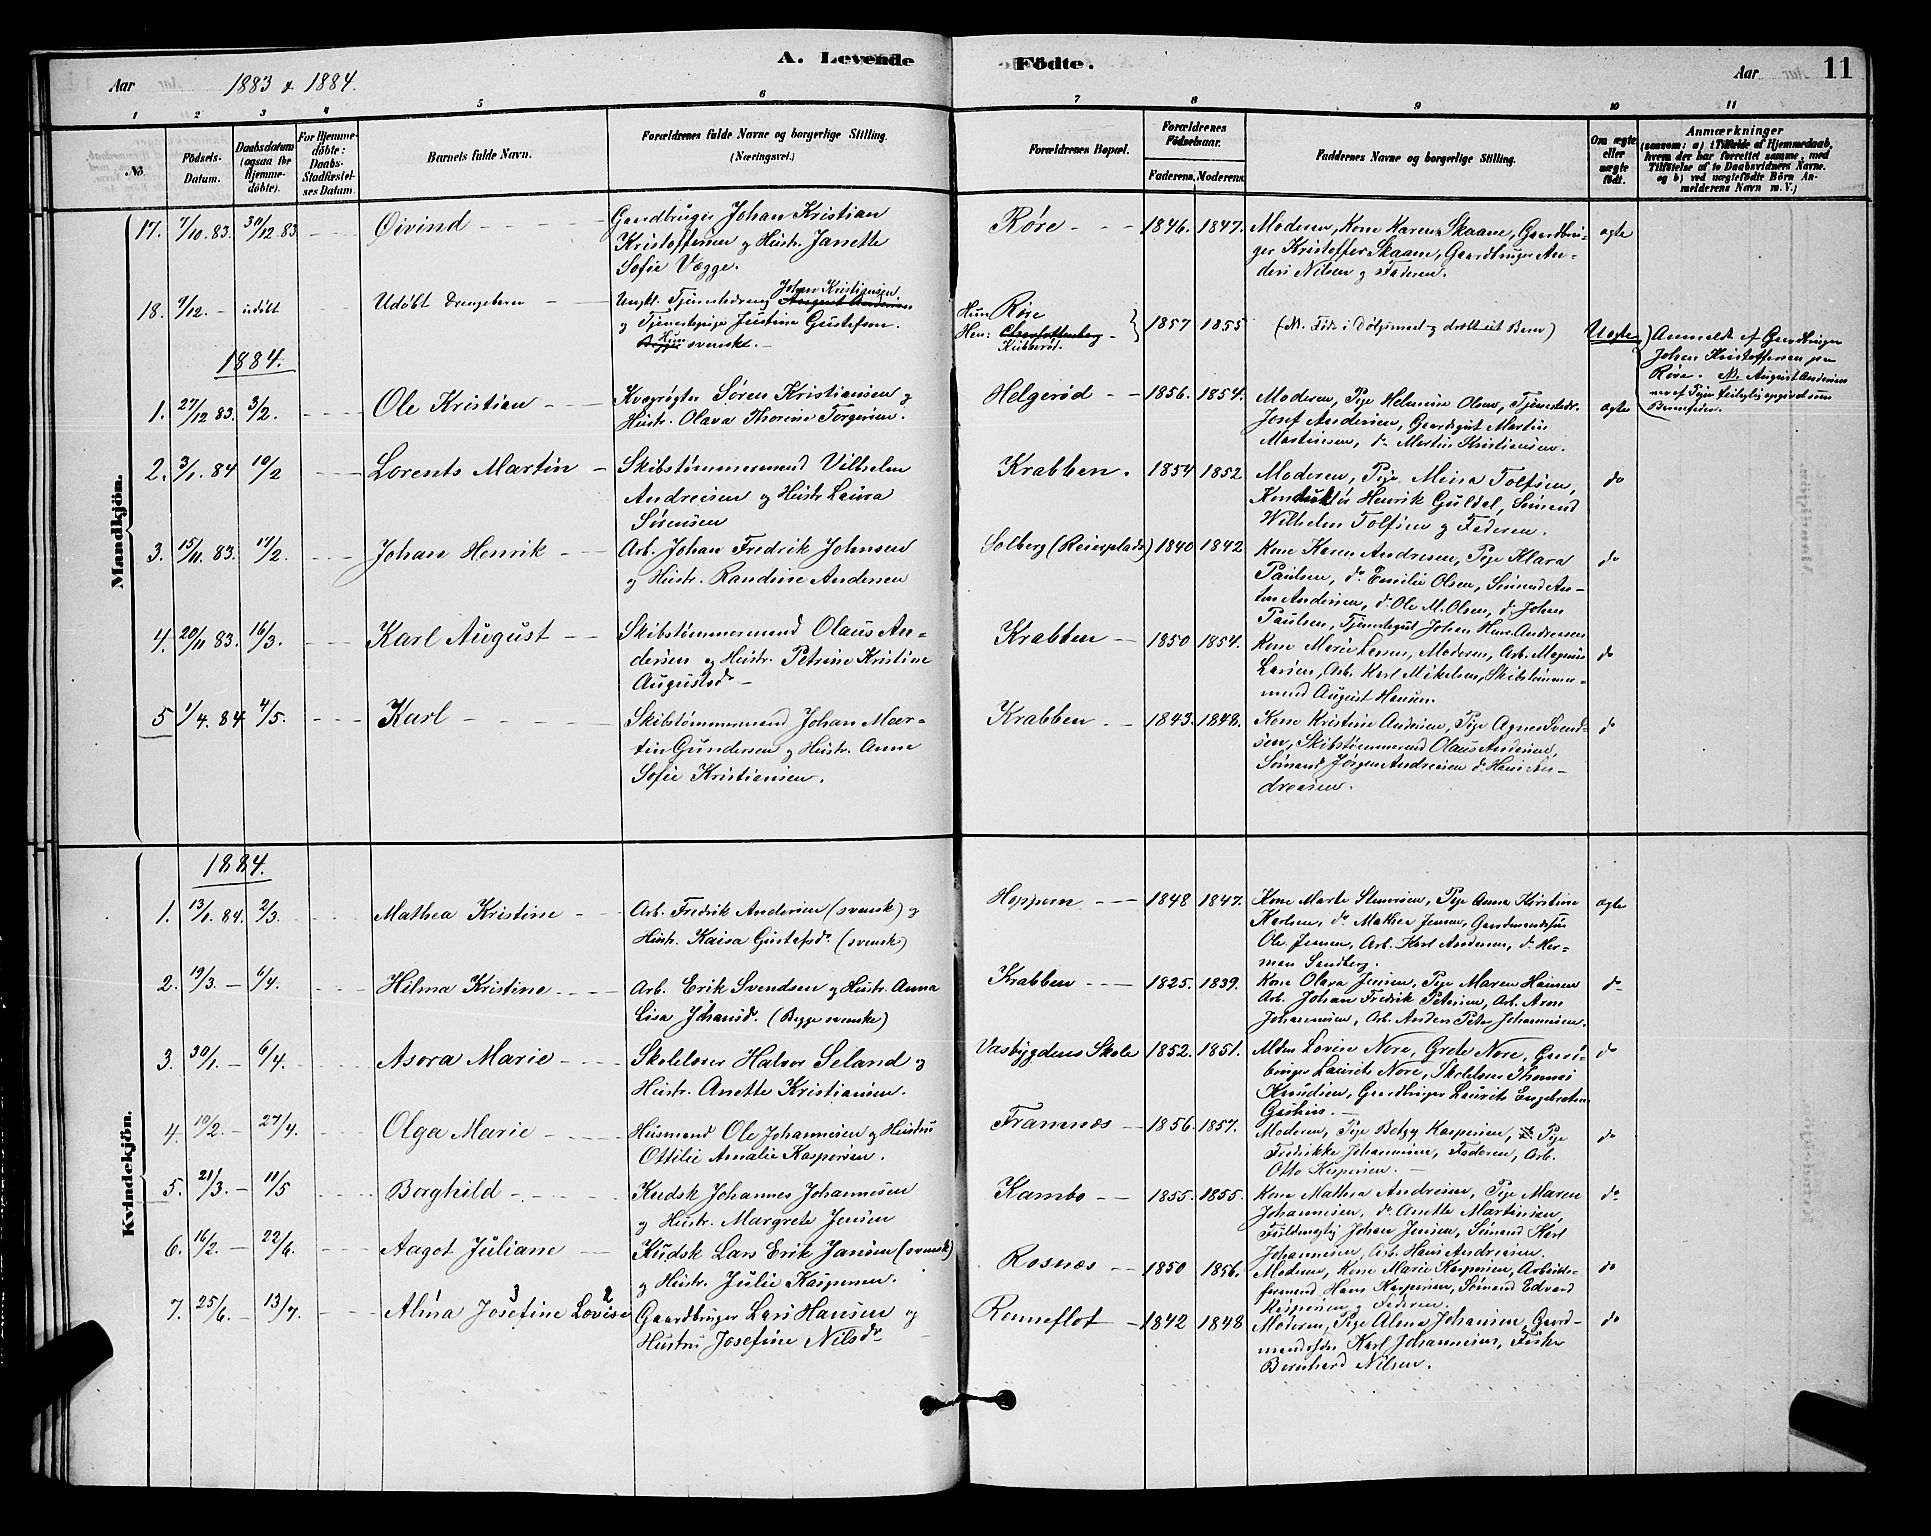 A. Levende Fødte.
Aar 1883 & 1884.
Aar 11
1 2 3 4 5 6 7 8 9 10 11
No
Fødsels-Datum.
Daabsdatum (ogsaa for Hjemme-døbte).
For Hjemme-døbte: Daabs-Stadfæstel-ses Datum.
Barnets fulde Navn.
Forældrenes fulde Navne og borgerlige Stilling. (Næringsvei.)
Forældrenes Bopæl.
Forældrenes Fødselsaar.
Faderens. Moderens.
Faddernes Navne og borgerlige Stilling.
Om ægte eller uægte født.
Anmærkninger
(saasom: a) i Tilfælde af Hjemmedaab, hvem der har forrettet samme, med Tilføielse af to Daabsvidners Navne. og b) ved uægtefødte Børn An-melderens Navn m. V.)
Mandkjön.
17. 7/10. 83. 30/12. 83 Øivind Gaardbruger Johan Kristian
Kristoffersen og Hustr. Janette
Sofie Vegge.
Røre 1846. 1847. Moderen, Kone Karen Skaane, Gaardbru-
ger Kristoffer Skaane, Gaardbruger An-
ders Nilsen og Faderen. ægte
18. 7/12. - udøbt Udøbt Drengebarn Ungk. Tjenestedreng Johan Kristiansen August Andersen
og Tjenestepige Justine Gustafsen.
Begge Hun svenske.
Hun Røre
Han: Kubberød. 1857 1855 Uægte
Anmeldt af Gaardbruger
Johan Kristoffersen paa
Røre. Nb. August Andersen
1884.
1. 27/12 83. 3/2. Ole Kristian Kvægrøgter Søren Kristiansen og
Hustr. Olava Thorine Torgersen.
Helgerød 1856. 1854. Moderen, Pige Helmine Olsen, Tjenestedr.
Josef Andersen, Gaardsgut Martin
Martinsen, do Martin Kristiansen. ægte
2. 3/1. 84 10/2 Lorents Martin Skibstømmermand Vilhelm
Andreasen og Hustr Laura
Sørensen
Krabben. 1854 1852 Moderen, Pige Mina Tolfsen,
Konduktør Henrik Guldal, Sømand
Wilhelm Tolfsen og Faderen. do
3. 15/11. 83. 17/2. Johan Henrik Arb. Johan Fredrik Johnsen
og Hustr. Randine Andersen
Solberg (Reierplads) 1840 1842 Kone Karen Andresen, Pige Klara
Paulsen, do Emilie Olsen, Sømand An-
ton Andersen, do Ole M. Olsen, do Johan
Paulsen, Tjenestegut Johan Henr. Andresen do
4. 20/11 83. 16/3. Karl August Skibstømmermand Olaus An-
dersen og Hustr. Petrine Kristine
Augustsdr.
Krabben 1850 1854. Kone Marie Larsen, Moderen, Arb. Magnus
Larsen, Arb. Karl Mikelsen, Skibstømmer-
mand August Hansen. do
5 1/4. 84 4/5. Karl Skibstømmermand Johan Mar-
tin Gundersen og Hustr. Anne
Sofie Kristiansen.
Krabben 1843. 1848. Kone Kristine Andersen, Pige Agnes Svend-
sen, Skibstømmermand Olaus Andersen,
Sømand Jørgen Andreasen do Hans An-
dreasen. do
Kvindekjön.
1884.
1. 13/1. 84. 2/3. Mathea Kristine Arb. Fredrik Andersen (svensk) og
Hustr. Kaisa Gustafsdr. (svensk)
Hoppern 1848 1847. Kone Marte Stenersen, Pige Anna Kristine
Karlsen, do Mathea Jensen, Gaardmandssøn
Ole Jensen, Arb. Karl Andersen, do Her-
man Sandberg. ægte
2. 19/3. 6/4. Hilma Kristine Arb. Erik Svendsen og Hustr. Anna
Lisa Johansd. (Begge svenske)
Krabben 1825. 1839. Kone Olava Jensen, Pige Maren Hansen
Arb. Johan Fredrik Petersen, Arb. Aron
Johannesen, Arb. Anders Peter Johannesen. do
3. 30/1. 6/4. Asora Marie Skolelærer Halvor Seland og
Hustr. Anette Kristiansen.
Vasbygdens Skole 1852. 1851. Alden Lovise Nore, Grete Nore, Gaard-
bruger Laurits Nore, Skolelærer Thomas
Knudsen, Gaardbruger Laurits Engebretsen
do
4. 10/2. 27/4. Olga Marie Husmand Ole Johannesen og Hustru
Ottilie Amalie Kaspersen.
Framnæs 1856. 1857. Moderen, Pige Betzy Kaspersen, Pige
Fredrikke Johannesen, Faderen, Arb.
Otto Kaspersen. do
5. 21/3. 11/5 Borghild Kudsk Johannes Johannesen
og Hustr. Margrete Jensen
Kambo 1855. 1855. Kone Mathea Andresen, Pige Maren
Johannesen, do Anette Martinsen,
Fuldmægtig Johan Jensen, Sømand Karl
Johannesen, Arb. Hans Andreasen. do
6. 16/2. 22/6. Aagot Juliane Kudsk Lars Erik Jansen (svensk)
og Hustr. Julie Kaspersen.
Rosnæs 1850 1856. Moderen, Kone Marie Kaspersen, Arbeids-
formand Hans Kaspersen, Sømand Edvard
Kaspersen og Faderen. do
7. 25/6. 13/7. Alma Josefine 3 Lovise 2 Gaardbruger Lars Hansen og
Hustru Josefine Nilsdr
Renneflot 1842 1848 Moderen, Pige Alma Johansen, Gaard-
mandssøn Karl Johannesen, Fisker
Bernhard Nilsen. do